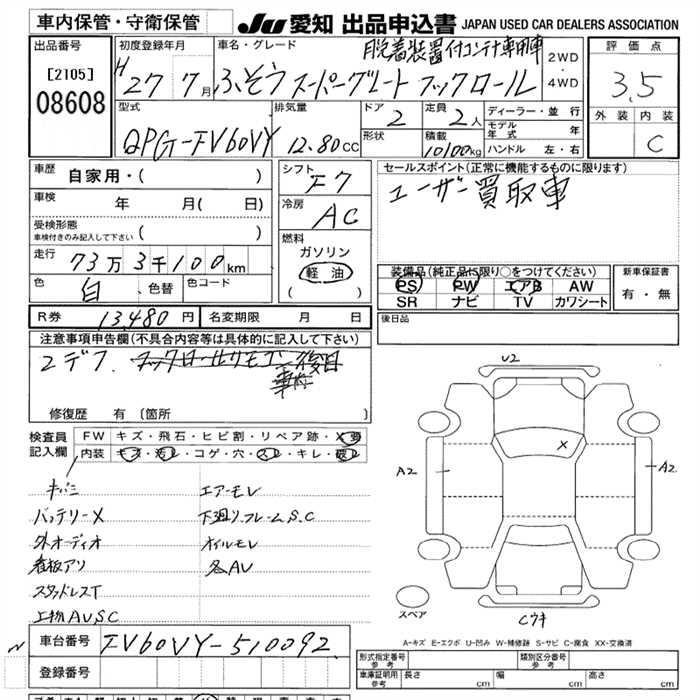 車内保管・守衛保管
JU 愛知 出品申込書 JAPAN USED CAR DEALERS ASSOCIATION
出品番号
[2105]
08608
初度登録年月
H 27 7月
車名・グレード
脱着装置付コンテナ専用車
ふそう スーパーグレート フックロール
2WD
・
4WD
評価点
3.5
外装 内装
C
型式
QPG-FV60VY
排気量
12.80cc
ドア
2
形状
定員
2人
積載
10100kg
ディーラー・並行
モデル年式 年
ハンドル 左・右
車歴 自家用・( )
車検 年 月( 日)
受検形態
車検付きのみ記入して下さい ( )
走行 73万3千100km
色 白 色替 色コード
シフト
F7
冷房
AC
燃料
ガソリン
軽油
( )
セールスポイント(正常に機能するものに限ります)
ユーザー買取車
装備品(純正品に限り○をつけてください)
PS PW エアB AW
SR ナビ TV カワシート
新車保証書
有・無
R券 13,480円 名変期限 月 日
後日品
注意事項申告欄(不具合内容等は具体的に記入して下さい)
2デフ. フックロールリモコン後日
修復歴 有 (箇所 )
検査員記入欄
FW キズ・飛石・ヒビ割・リペア跡・X要
内装 キズ・汚レ・コゲ・穴・スレ・キレ・破レ
キバミ エアーモレ
バッテリーX 下廻りフレームS.C
外オーディオ オイルモレ
看板アリ 各AV
スタッドレスT
上物AVSC
U2
X
A2
A2
スペア
Cウキ
A-キズ E-エクボ U-凹み W-補修跡 S-サビ C-腐食 XX-交換済
車台番号 FV60VY-510092
登録番号
形式指定番号 参考
類別区分番号 参考
車庫証明用 参考 長さ cm 幅 cm 高さ cm